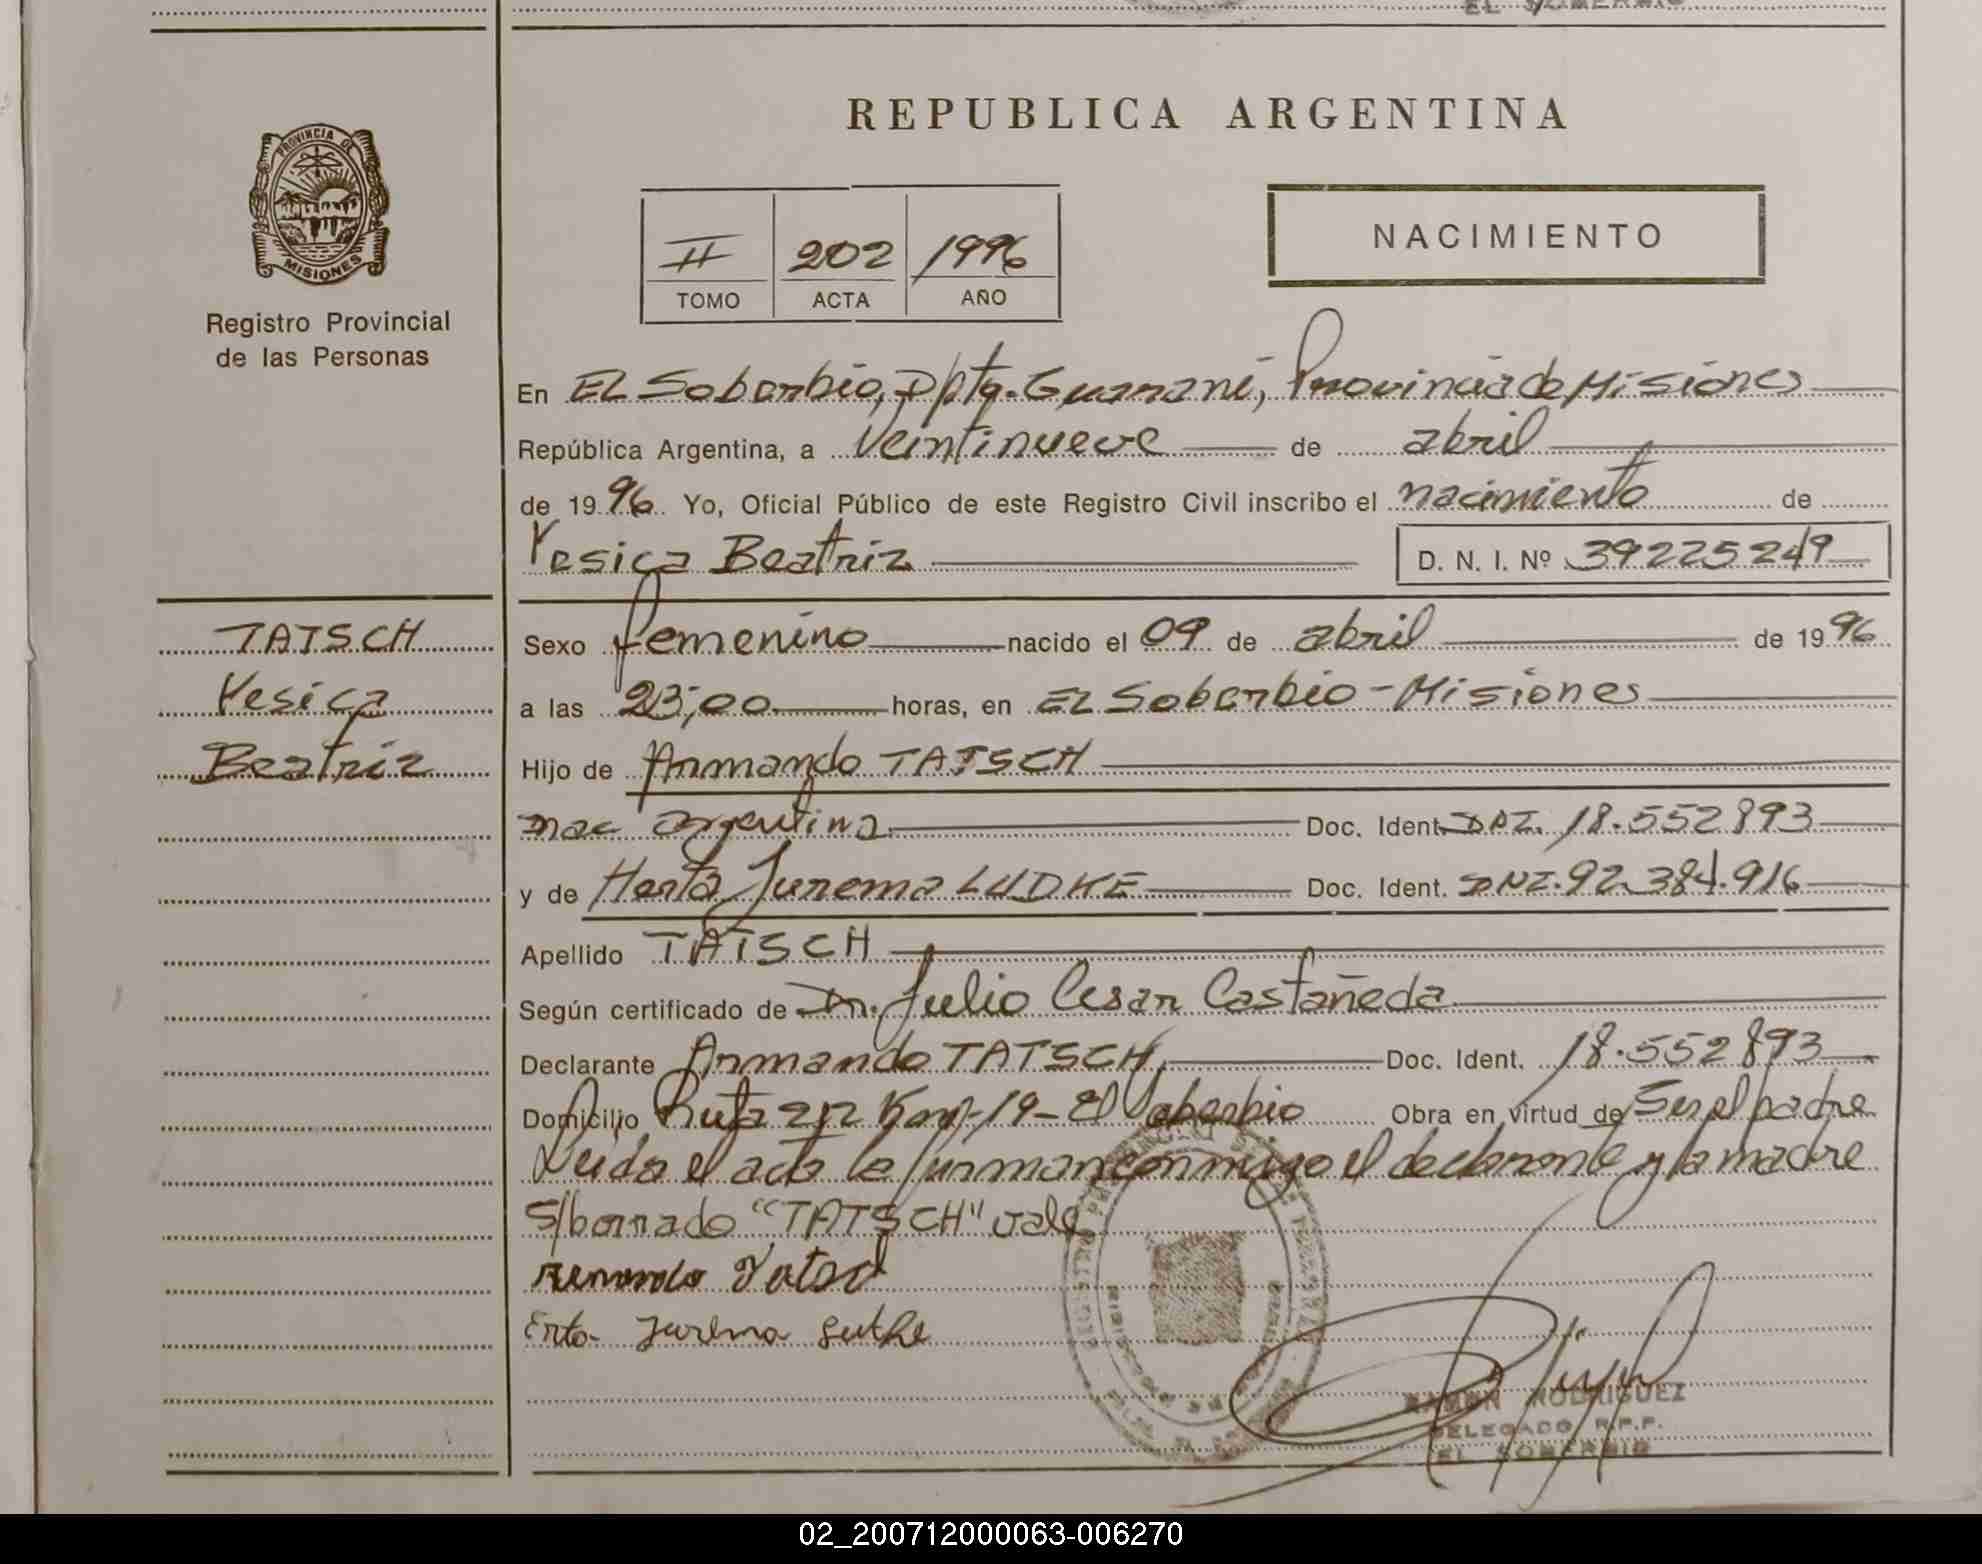 EL SOBERBIO
REPUBLICA ARGENTINA
PROVINCIA DE
MISIONES
Registro Provincial
de las Personas
II 202 1996
TOMO ACTA AÑO
NACIMIENTO
En EL Soberbio, Dpto. Guaraní, Provincia de Misiones
República Argentina, a Veintinueve de abril
de 1996 Yo, Oficial Público de este Registro Civil inscribo el nacimiento de
Yesica Beatriz D. N. I. Nº 39225249
TATSCH
Yesica
Beatriz
Sexo femenino nacido el 09 de abril de 1996
a las 23,00 horas, en EL Soberbio - Misiones
Hijo de Armando TATSCH
nac argentina Doc. Ident. DNI. 18.552893
y de Herta Jurema LUDKE Doc. Ident. DNI. 92.384.916
Apellido TATSCH
Según certificado de Dr. Julio Cesar Castañeda
Declarante Armando TATSCH, Doc. Ident. 18.552893
Domicilio Ruta 212 Km-19- El Soberbio Obra en virtud de Ser el padre
Leida el acta la firman conmigo el declarante y la madre
S/borrado "TATSCH" vale
Armando Tatsch
Erta Jurema
RAMON RODRIGUEZ
DELEGADO R.P.P.
EL SOBERBIO
02_200712000063-006270